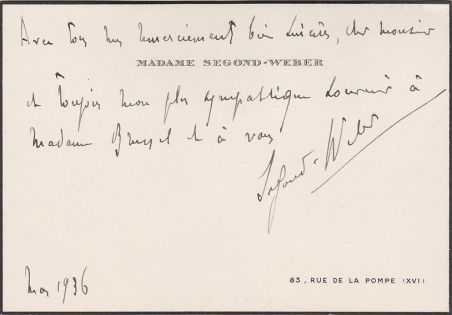 Avec tous mes remerciements bien sincères, cher monsieur
MADAME SEGOND-WEBER
et toujours mon plus sympathique souvenir à
Madame Brussel et à vous
Segond-Weber
1936
83, RUE DE LA POMPE (XVI)